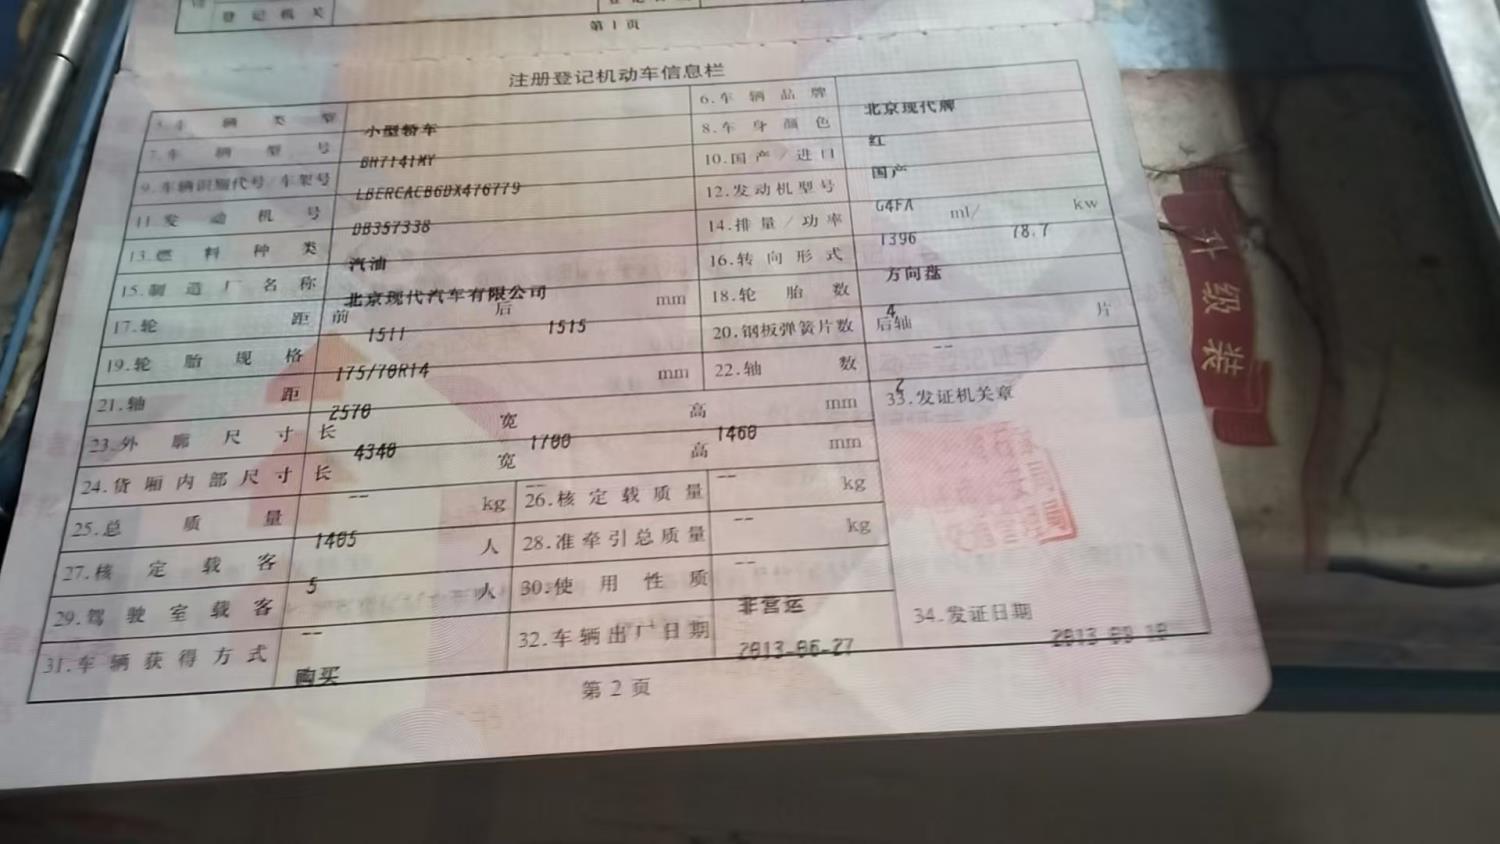 登记机关
第1页
注册登记机动车信息栏
5.车辆类型 小型轿车 6.车辆品牌 北京现代牌
7.车辆型号 BH7141MY 8.车身颜色 红
9.车辆识别代号/车架号 LBERCACB6DX476779 10.国产/进口 国产
11.发动机号 DB357338 12.发动机型号 G4FA
13.燃料种类 汽油 14.排量/功率 1396 ml/ 78.7 kw
15.制造厂名称 北京现代汽车有限公司 16.转向形式 方向盘
17.轮距 前 1511 后 1515 mm 18.轮胎数 4
19.轮胎规格 175/70R14 20.钢板弹簧片数 后轴 -- 片
21.轴距 2570 mm 22.轴数 2
23.外廓尺寸 长 4340 宽 1700 高 1460 mm 33.发证机关章
24.货厢内部尺寸 长 -- 宽 -- 高 -- mm
25.总质量 1405 kg 26.核定载质量 -- kg
27.核定载客 5 人 28.准牵引总质量 -- kg
29.驾驶室载客 -- 人 30.使用性质 非营运
31.车辆获得方式 购买 32.车辆出厂日期 2013-06-27 34.发证日期
第2页
升级装